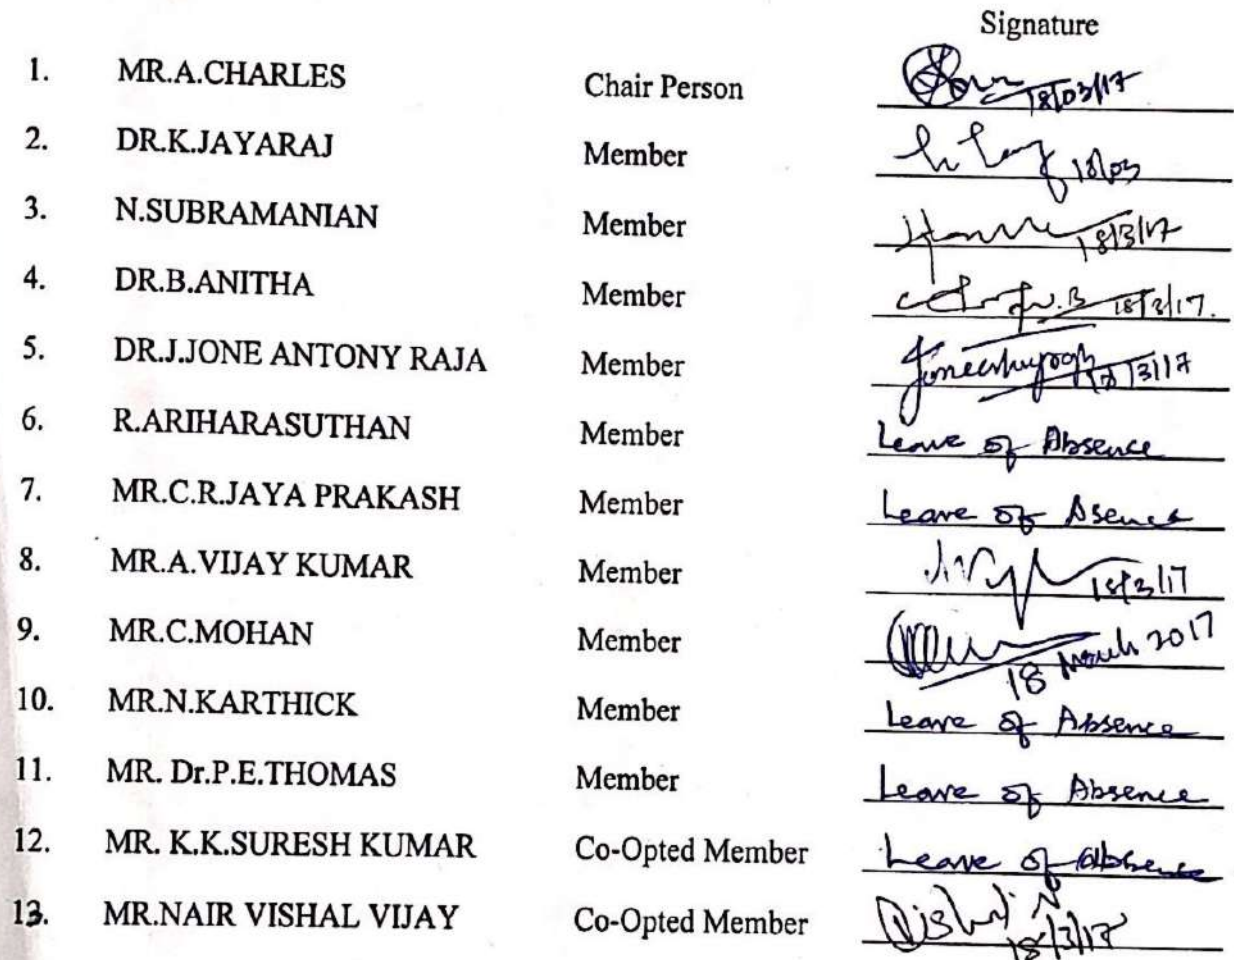 Signature
1. MR.A.CHARLES Chair Person 18/03/17
2. DR.K.JAYARAJ Member 18/03
3. N.SUBRAMANIAN Member 18/3/17
4. DR.B.ANITHA Member 18/3/17.
5. DR.J.JONE ANTONY RAJA Member 18/3/17
6. R.ARIHARASUTHAN Member Leave of Absence
7. MR.C.R.JAYA PRAKASH Member Leave of Asence
8. MR.A.VIJAY KUMAR Member 18/3/17
9. MR.C.MOHAN Member 18 March 2017
10. MR.N.KARTHICK Member Leave of Absence
11. MR. Dr.P.E.THOMAS Member Leave of Absence
12. MR. K.K.SURESH KUMAR Co-Opted Member Leave of Absence
13. MR.NAIR VISHAL VIJAY Co-Opted Member 18/3/17